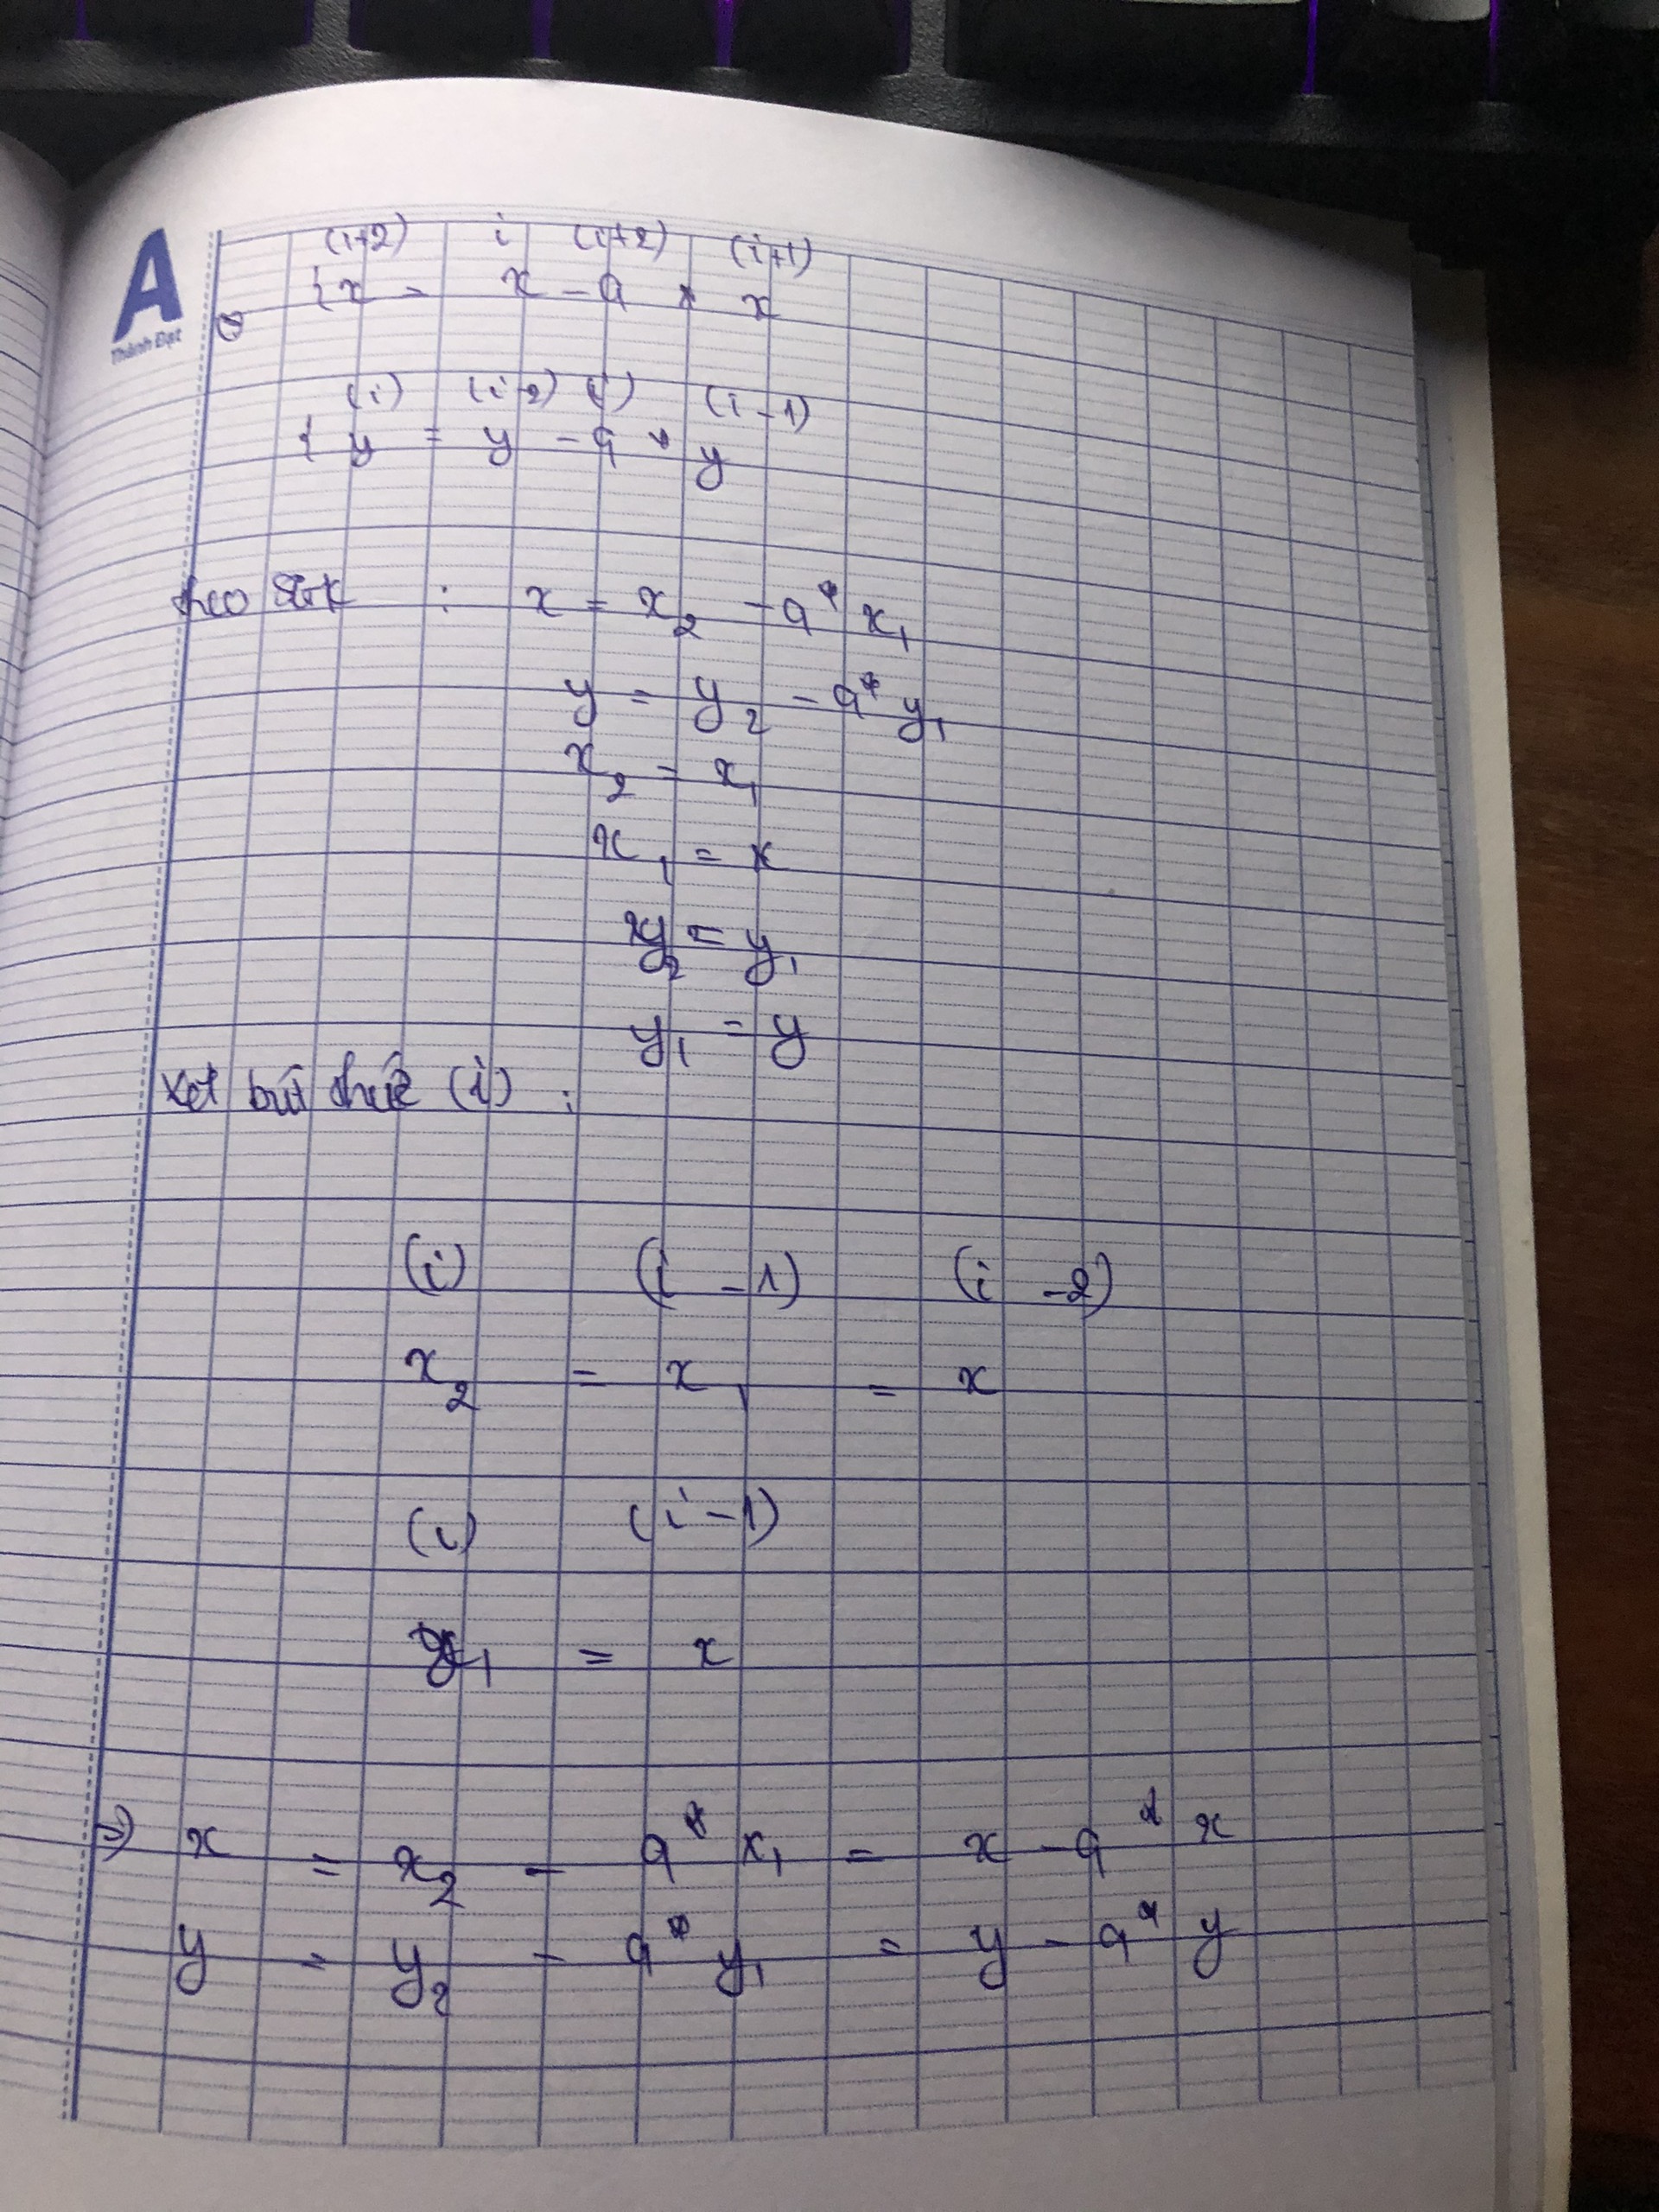 A
Thành Đạt
(i+2) i (i+2) (i+1)
{ x = x - q * x
(i) (i-2) (i) (i-1)
{ y = y - q * y
theo SGK : x = x2 - q* x1
y = y2 - q* y1
x2 = x1
x1 = x
y2 = y1
y1 = y
Xét biểu thức (i) :
(i) (i - 1) (i - 2)
x2 = x1 = x
(i) (i-1)
x1 = x
=> x = x2 - q* x1 = x - q* x
y = y2 - q* y1 = y - q* y